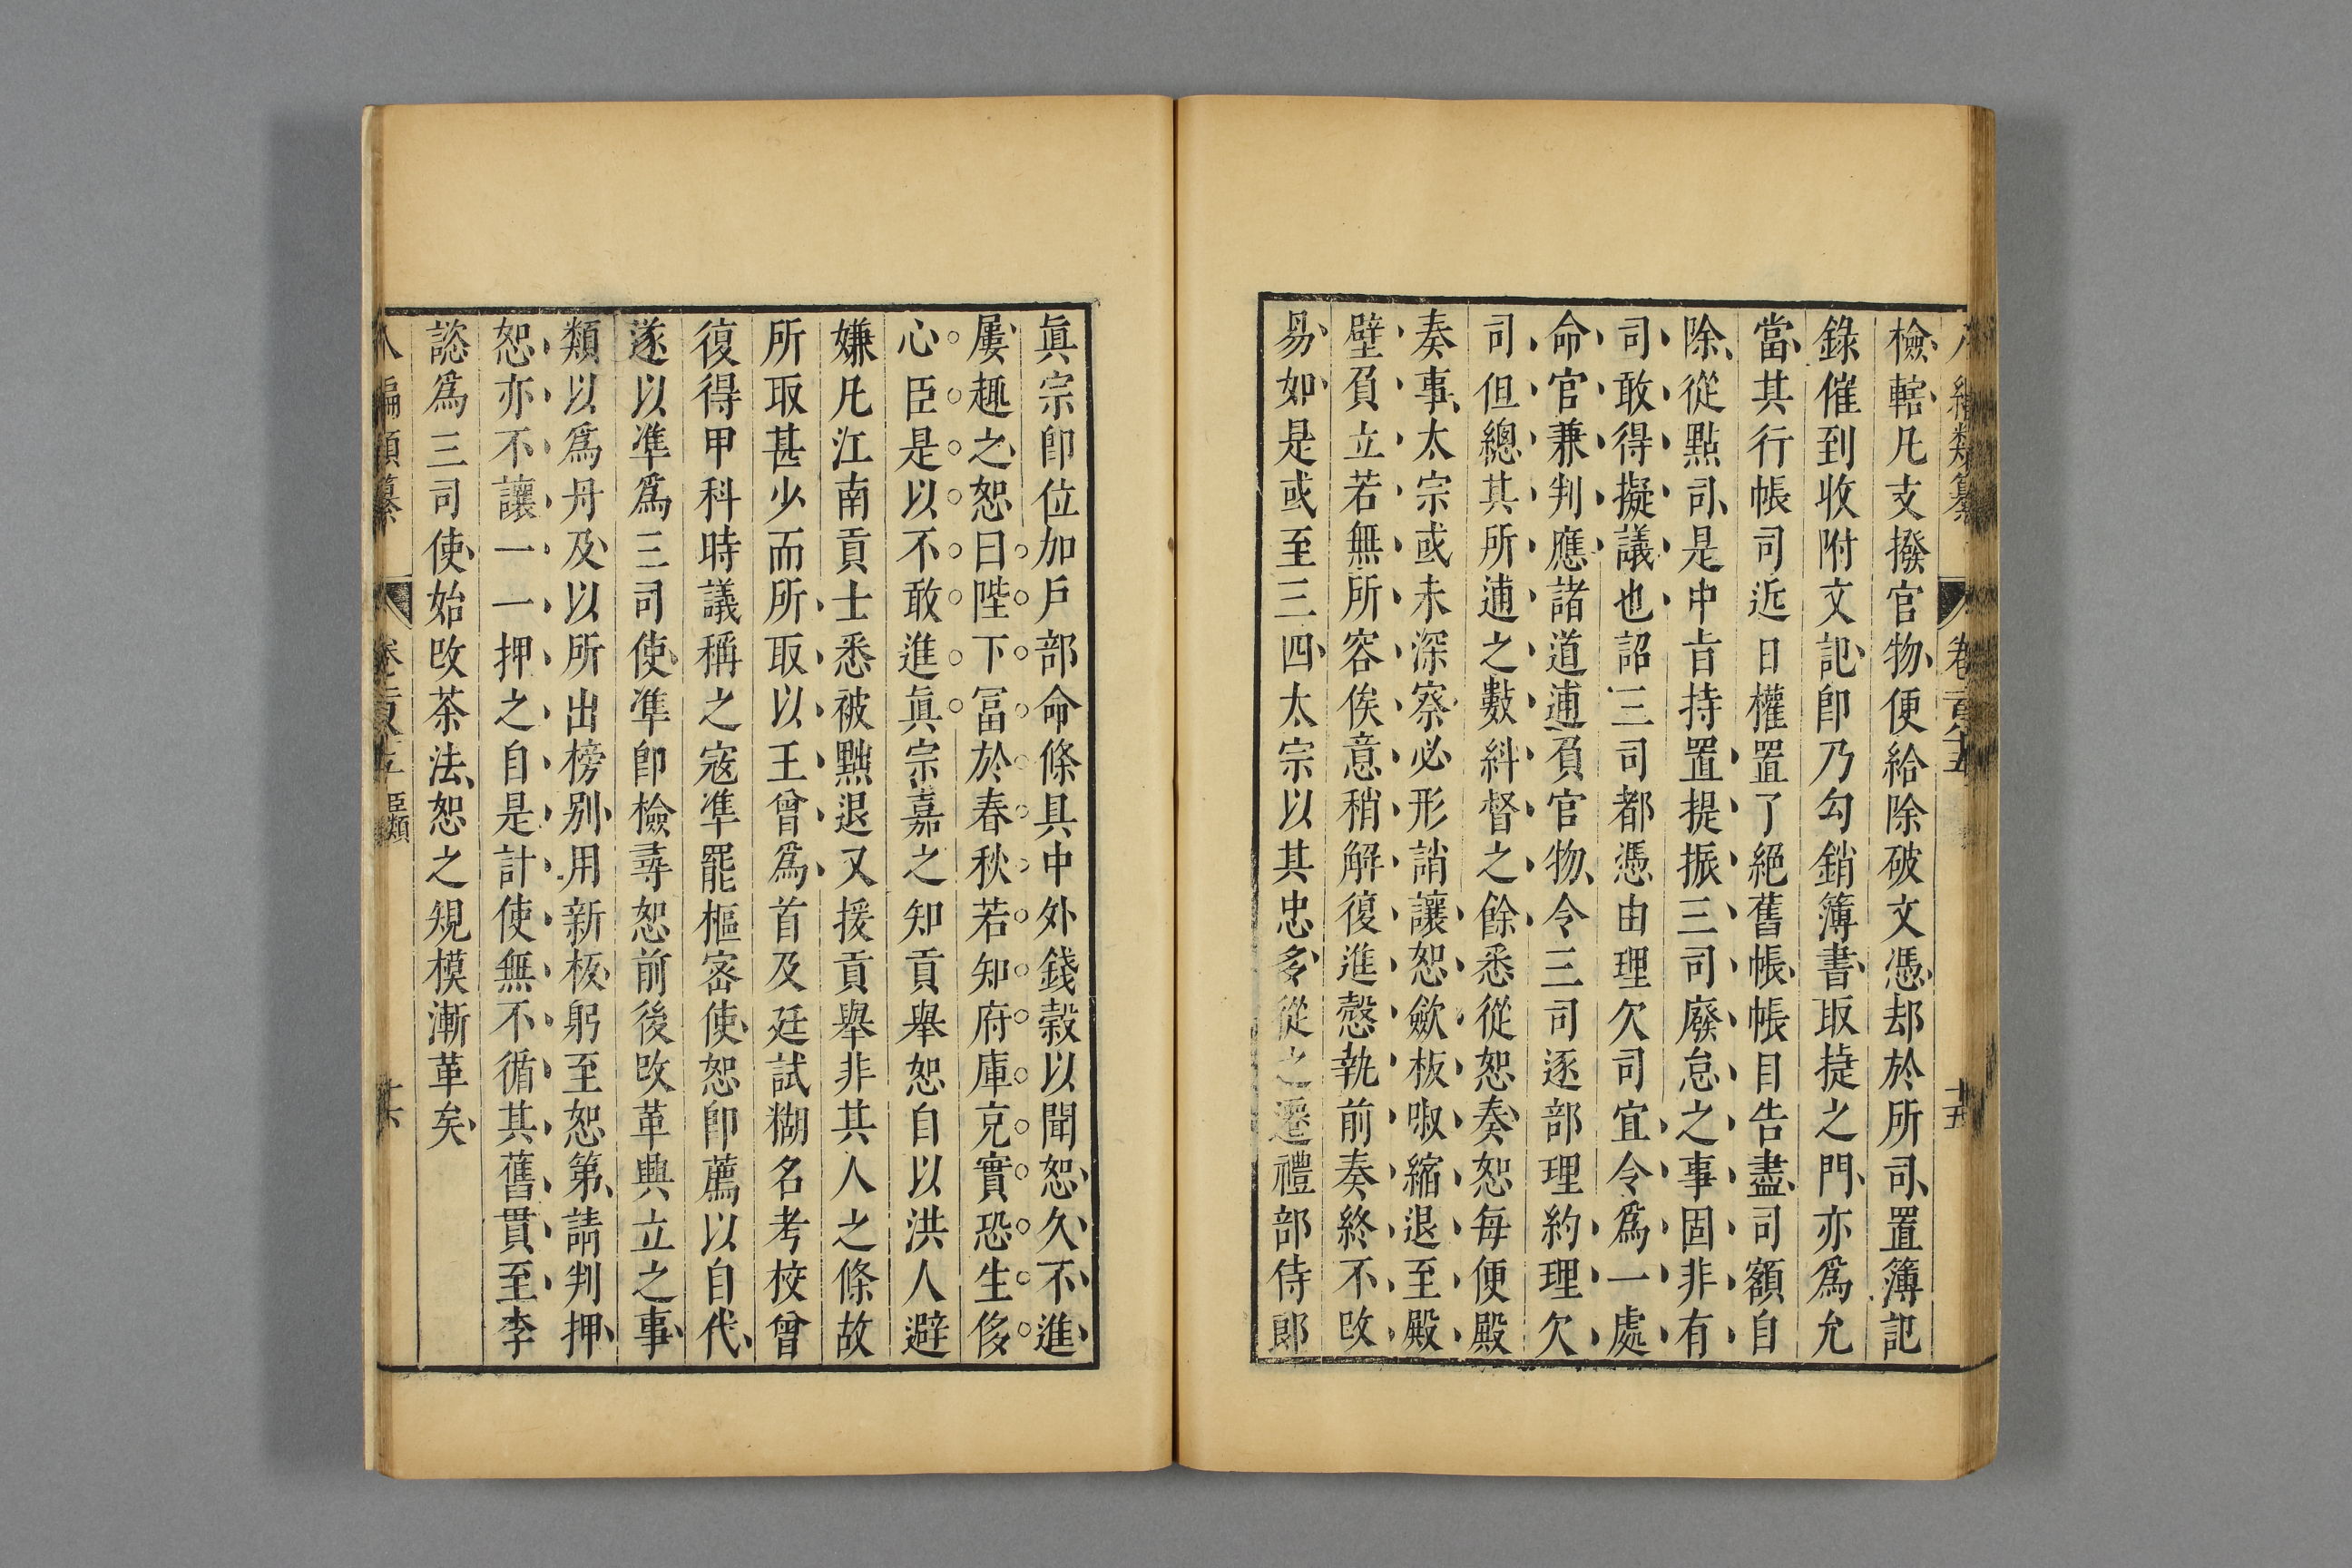 檢轄凡支撥官物便給除破文憑却於所司置簿記
錄催到收附文記卽乃勾銷簿書取㨗之門亦爲允
當其行帳司近日權置了絕舊帳帳目告盡司額自
除從點司是中旨持置提振三司廢怠之事固非有
司敢得擬議也詔三司都憑由理欠司宜令爲一處
命官兼判應諸道逋負官物令三司逐部理約理欠
司但總其所逋之數糾督之餘悉從恕奏恕每便殿
奏事太宗或未深察必形誚讓恕斂板踧縮退至殿
壁負立若無所容俟意稍解復進慤執前奏終不改
易如是或至三四太宗以其忠多從之遷禮部侍郎
眞宗卽位加戶部命條具中外錢穀以聞恕久不進
屢趣之恕曰陛下富於春秋若知府庫充實恐生侈
心臣是以不敢進眞宗嘉之知貢舉恕自以洪人避
嫌凡江南貢士悉被黜退又援貢舉非其人之條故
所取甚少而所取以王曾爲首及廷試糊名考校曾
復得甲科時議稱之寇準罷樞密使恕卽薦以自代
遂以準爲三司使準卽檢尋恕前後改革興立之事
類以爲冊及以所出榜别用新板躬至恕第請判押
恕亦不讓一一押之自是計使無不循其舊貫至李
諮爲三司使始改茶法恕之規模漸革矣